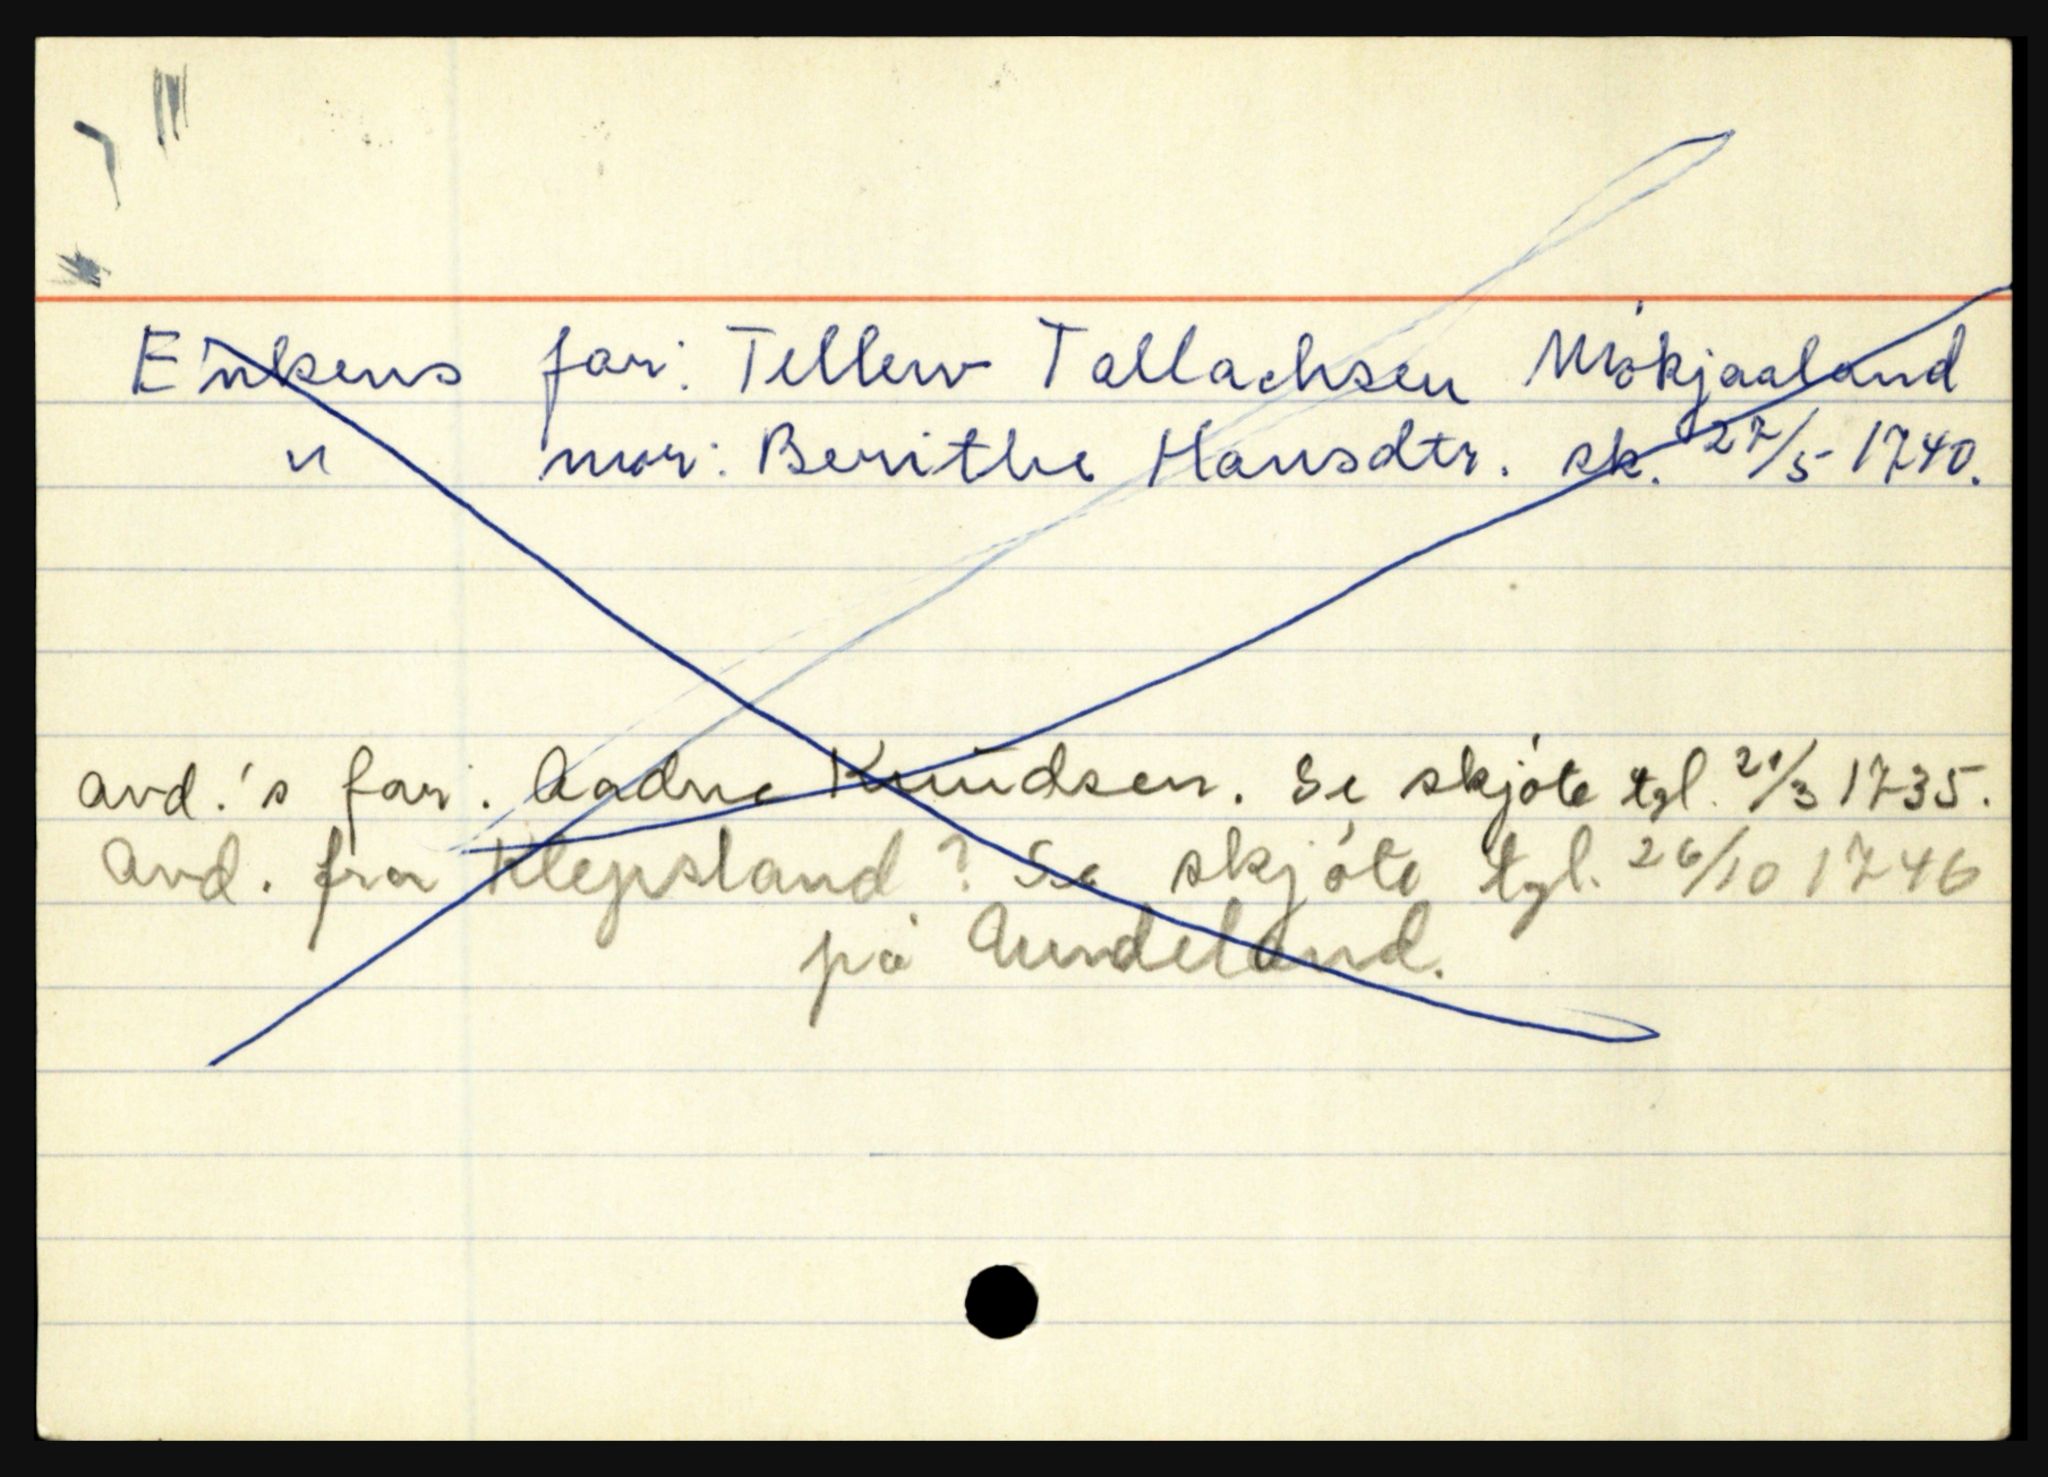 Enkens far: Tellew Tallachsen Mokjaaland
" mor: Berithe Hansdtr. sk. 27/5 1740.
avd.'s far: Aadne Knudsen. Se skjöte tgl. 21/3 1735.
Avd. fra Klepsland? Se skjöte tgl. 26/10 1746
på Aundeland.